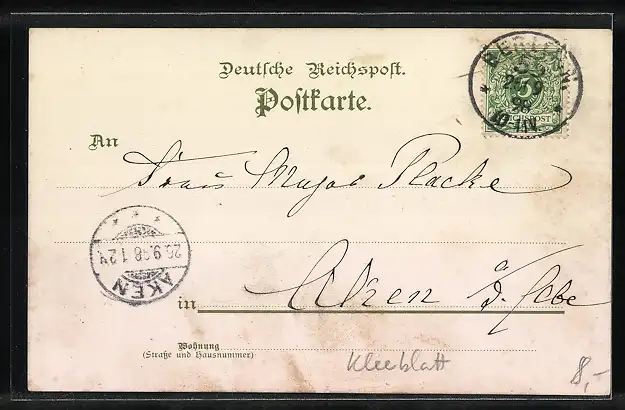 Deutsche Reichspost.
Postkarte.
BERLIN W.
9
98
10-11V.
5
REICHSPOST
An
Frau Major Placke
AKEN
26.9.98 1.2N
in Aken a/d. Elbe
Wohnung
(Straße und Hausnummer)
Kleeblatt
8,-